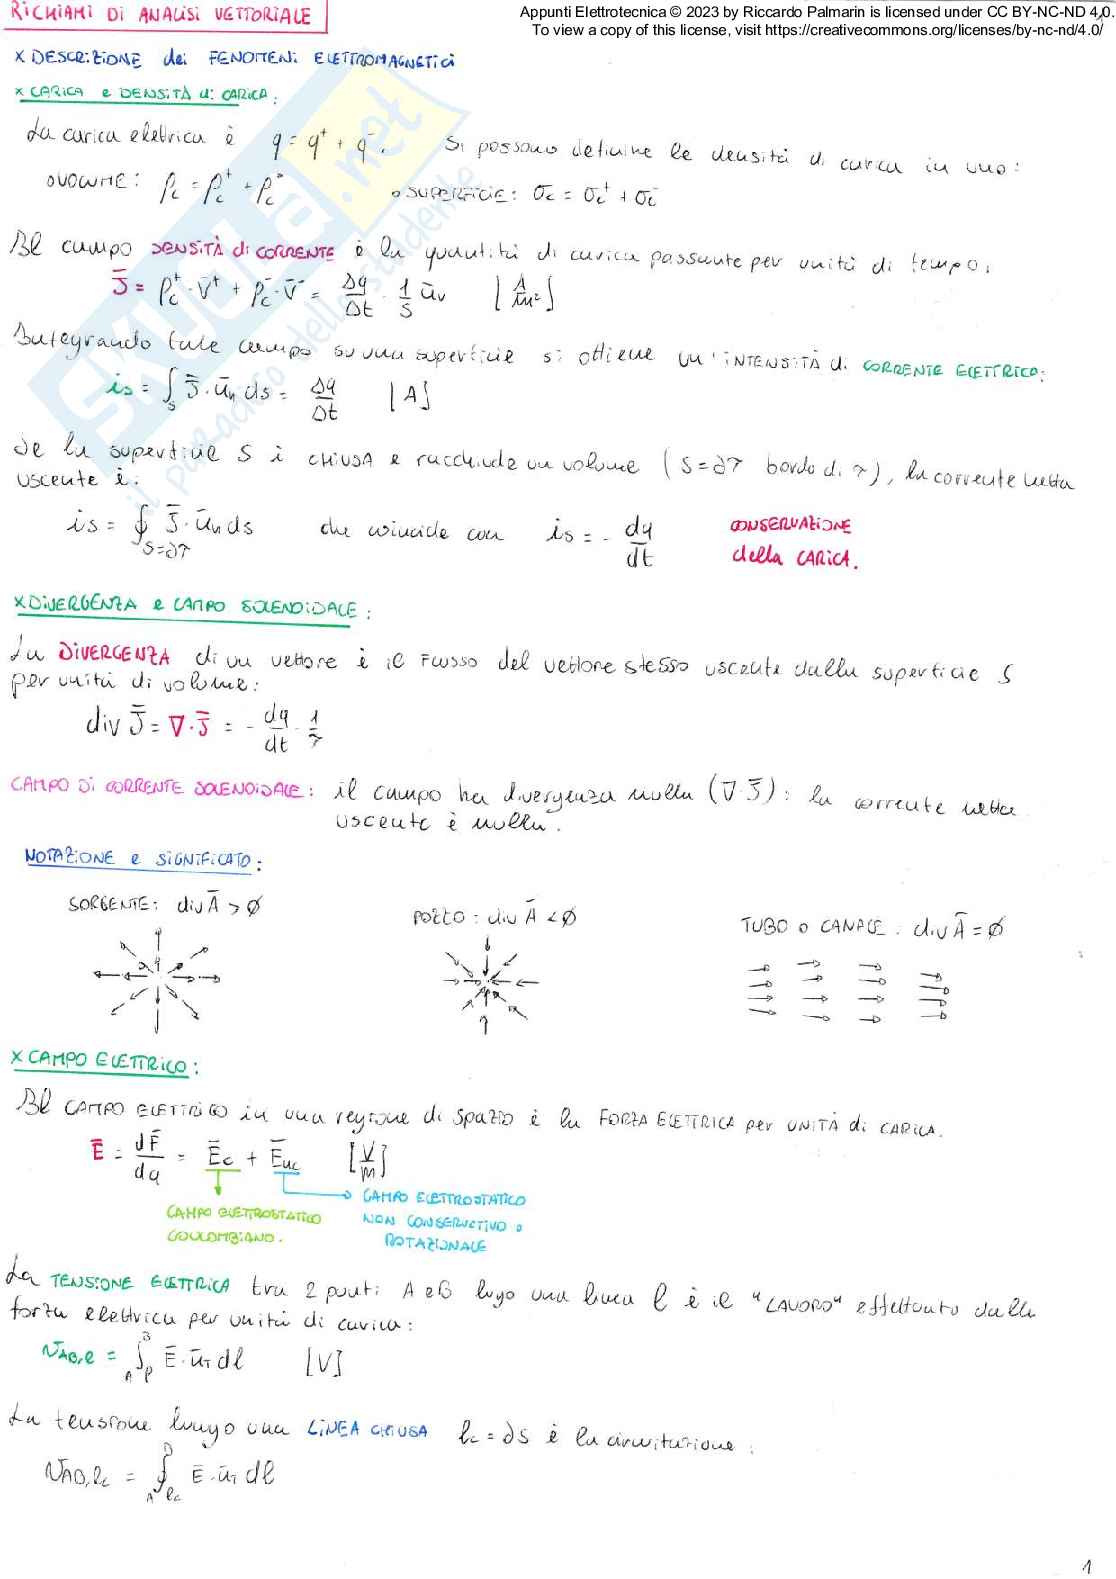 RICHIAMI DI ANALISI VETTORIALE
Appunti Elettrotecnica © 2023 by Riccardo Palmarin is licensed under CC BY-NC-ND 4.0.
To view a copy of this license, visit https://creativecommons.org/licenses/by-nc-nd/4.0/
x DESCRIZIONE dei FENOMENI ELETTROMAGNETICI
x CARICA e DENSITÀ di CARICA:
La carica elettrica è q = q⁺ + q⁻. Si possono definire le densità di carica in uno:
o VOLUME: ρc = ρc⁺ + ρc⁻ o SUPERFICIE: σc = σc⁺ + σc⁻
Il campo DENSITÀ di CORRENTE è la quantità di carica passante per unità di tempo.
J̄ = ρc⁺ · v̄⁺ + ρc⁻ · v̄⁻ = Δq/Δt · 1/S ūv [A/m²]
Integrando tale campo su una superficie si ottiene un'INTENSITÀ di CORRENTE ELETTRICA:
is = ∫S J̄ · ūn ds = Δq/Δt [A]
Se la superficie S è CHIUSA e racchiude un volume (S = ∂τ bordo di τ), la corrente netta
uscente è:
is = ∮S=∂τ J̄ · ūn ds che coincide con is = - dq/dt CONSERVAZIONE
della CARICA.
x DIVERGENZA e CAMPO SOLENOIDALE:
La DIVERGENZA di un vettore è il FLUSSO del vettore stesso uscente dalla superficie S
per unità di volume:
div J̄ = ∇ · J̄ = - dq/dt · 1/τ
CAMPO DI CORRENTE SOLENOIDALE: il campo ha divergenza nulla (∇ · J̄): la corrente netta
uscente è nulla.
NOTAZIONE e SIGNIFICATO:
SORGENTE: div Ā > Ø POZZO: div Ā < Ø TUBO o CANALE: div Ā = Ø
x CAMPO ELETTRICO:
Il CAMPO ELETTRICO in una regione di spazio è la FORZA ELETTRICA per UNITÀ di CARICA.
Ē = dF̄/dq = Ēc + Ēnc [V/m]
CAMPO ELETTROSTATICO
COULOMBIANO.
CAMPO ELETTROSTATICO
NON CONSERVATIVO o
ROTAZIONALE
La TENSIONE ELETTRICA tra 2 punti A e B lungo una linea l è il "LAVORO" effettuato dalla
forza elettrica per unità di carica:
vAB,l = ∫ Ē · ūT dl [V]
La tensione lungo una LINEA CHIUSA lc = ∂S è la circuitazione:
vAB,lc = ∮lc Ē · ūT dl
1
SKUOLA.net
il paradiso dello studente